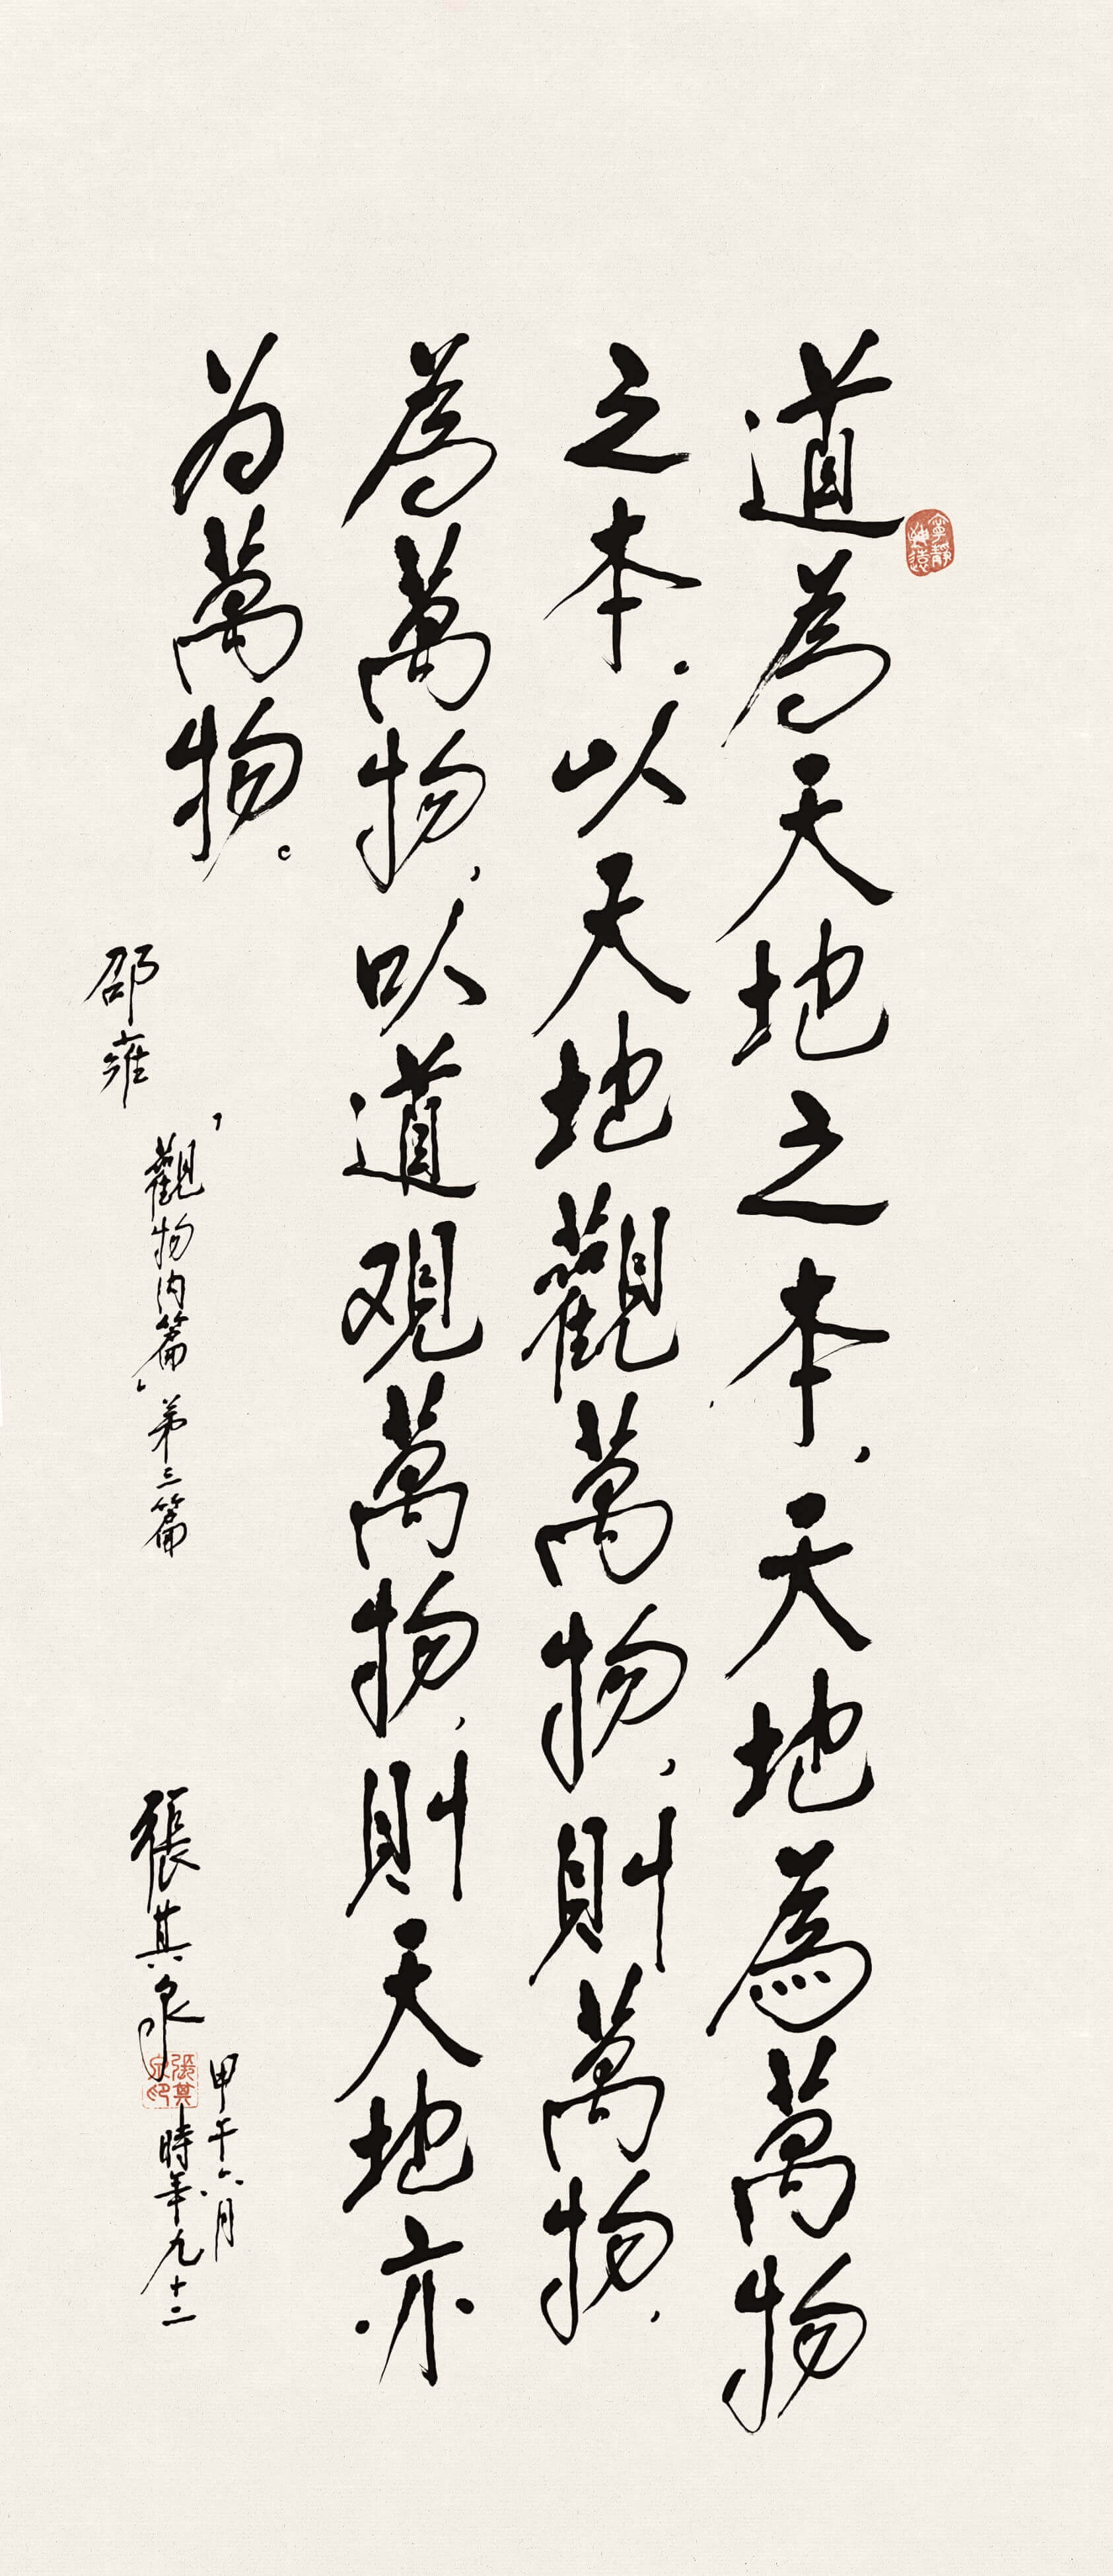 道為天地之本，天地為萬物
之本。以天地觀萬物，則萬物
為萬物，以道观萬物，則天地亦
为萬物。
邵雍
「觀物內篇」第三篇
張其泉
甲午六月
時年九十二
寧靜致遠
張其泉印